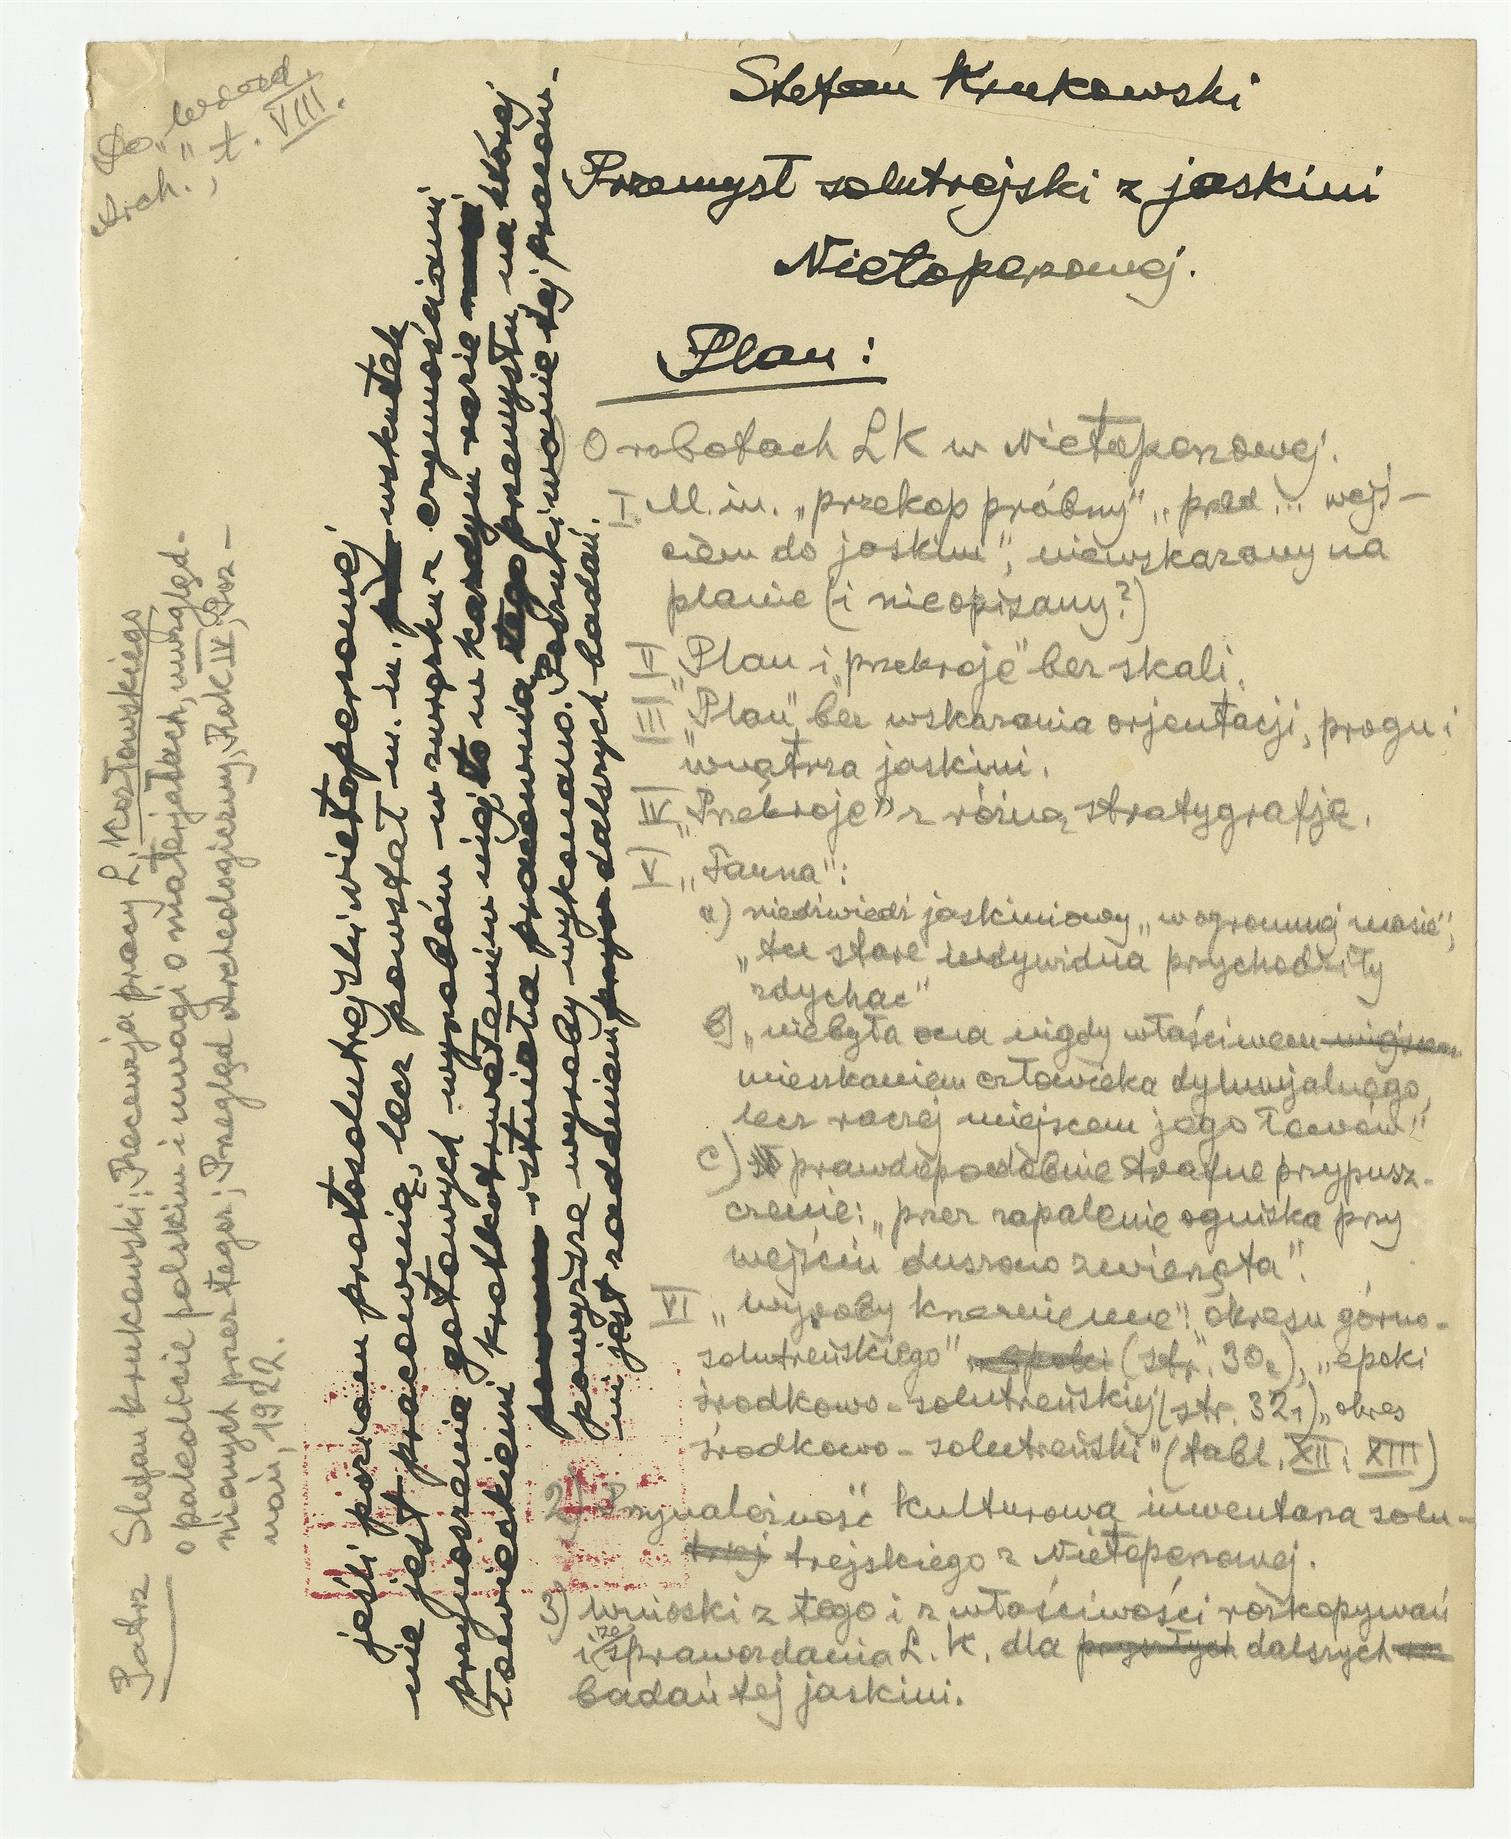 Do „Wiad.
Arch.", t. VIII.
Stefan Krukowski
Przemysł solutrejski z jaskini
Nietoperzowej.
Plan:
O robotach LK w Nietoperzowej.
I. M. in. „przekop próbny" „przed ... wejś-
ciem do jaskini", niewskazany na
planie (i nieopisany?)
II „Plan i „przekroje" bez skali.
III „Plan" bez wskazania orjentacji, progu i
wnętrza jaskini.
IV „Przekroje" z różną stratygrafją.
V „Fauna":
a) niedźwiedź jaskiniowy „w ogromnej masie",
„tu stare indywidua przychodziły
zdychać"
b) „niebyła ona nigdy właściwem miejscem
mieszkaniem człowieka dyluwjalnego,
lecz raczej miejscem jego łowów"
c) prawdopodobnie trafne przypusz-
czenie: „przez zapalenie ogniska przy
wejściu duszono zwierzęta".
VI „wyroby krzemienne": okresu górno-
solutreńskiego" epoki (str. 30), „epoki
środkowo-solutreńskiej (str. 32) „okres
środkowo-solutreński" (tabl. XII i XIII)
2) Przynależność kulturowa inwentarza solu-
trej trejskiego z Nietoperzowej.
3) Wnioski z tego i z właściwości rozkopywań
i ze sprawozdania L. K. dla przyszłych dalszych
badań tej jaskini.
jeśli poziom protosolutrejski Nietoperzowej
nie jest pracownią, lecz powstał m. in. wskutek
przynoszenia gotowych wyrobów w związku z czynnościami
łowieckiemi krótkotrwałemi w niej, to w każdym razie
istniała pracownia tego przemysłu, na której
powyższe wyroby wykonano. Poszukiwanie tej pracow-
ni jest zadaniem przysz dalszych badań.
Patrz Stefan Krukowski: Recenzja pracy L. Kozłowskiego
o paleolicie polskim i uwagi o materjałach, uwzględ-
nionych przez tegoż; Przegląd Archeologiczny, Rok IV, Poz-
nań, 1922.